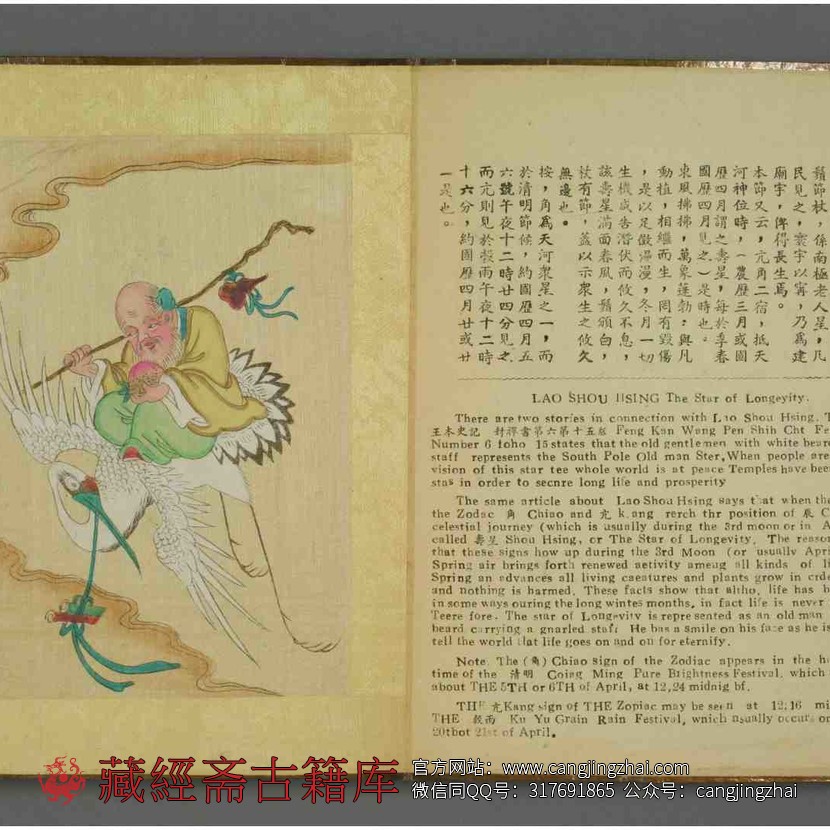 鬚節杖，係南極老人星，凡
民見之，寰宇以寧，乃為建
廟宇，俾得長生焉。
本節又云，亢角二宿，抵天
河神位時，（農歷三月或國
歷四月謂之壽星，每於季春
國歷四月見之）是時也。
東風拂拂，萬象蓬勃；與凡
動植，相繼而生，罔有毀傷
，是以足徵漫漫，冬月一切
生機或告潛伏而攸久不息，
該壽星滿面春風，鬚頒白，
杖有節，蓋以示衆生之攸久
無邊也。
按，角為天河衆星之一，而
於清明節候，約國歷四月五
六號午夜十二時廿四分見之
而亢則見於穀雨午夜十二時
十六分，約國歷四月廿或廿
一是也。
LAO SHOU HSING The Star of Longevity.
There are two stories in connection with Lao Shou Hsing. T
王本史記 封禪書第六第十五版 Feng Kan Wang Pen Shih Cht Fe
Number 6 foho 15 states that the old gentlemen with white beard
staff represents the South Pole Old man Ster, When people are
vision of this star tee whole world is at peace Temples have been
stas in order to secnre long life and prosperity
The same article about Lao Shou Hsing says that when the
the Zodac 角 Chiao and 亢 kang rerch thr position of 辰 C
celestial journey (which is usually during the 3rd moon or in A
called 壽星 Shou Hsing, or The Star of Longevity. The reason
that these signs how up during the 3rd Moon (or usually Apri
Spring air brings forth renewed aetivity ameug all kinds of li
Spring an advances all living caeatures and plants grow in crde
and nothing is harmed. These facts show that altho, life has b
in some ways ouring the long wintes months, in fact life is never
Teere fore. The star of Longevity is represented as an old man
beard carrying a gnarled staff He has a smile on his face as he is
tell the world that life goes on and on for eternify.
Note. The (角) Chiao sign of the Zodiac appears in the ho
time of the 清明 Coing Ming Pure Brightness Festival. which
about THE 5TH or 6TH of April, at 12,24 midnig bf.
THE 亢 Kang sign of THE Zopiac may be seen at 12:16 mi
THE 穀雨 Ku Yu Grain Rain Festival, wnich usually occurs on
20tbot 21st of April.
藏經斋古籍库
官方网站：www.cangjingzhai.com
微信同QQ号：317691865 公众号：cangjingzhai